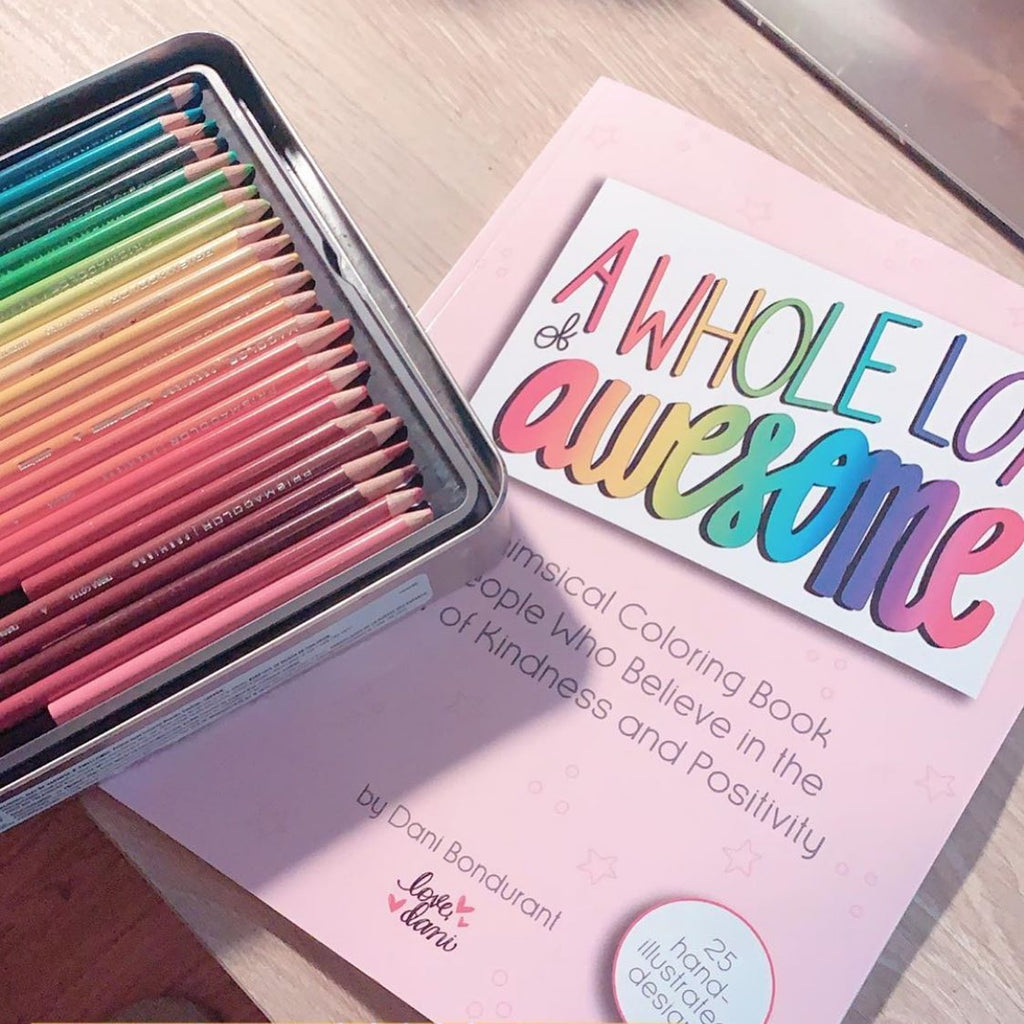 A WHOLE LO
of
awesome
imsical Coloring Book
eople Who Believe in the
of Kindness and Positivity
by Dani Bondurant
love,
dani
25
hand-
illustrate
desig
PRISMACOLOR
PRISMACOLOR | PREMIER
TERRA COTTA